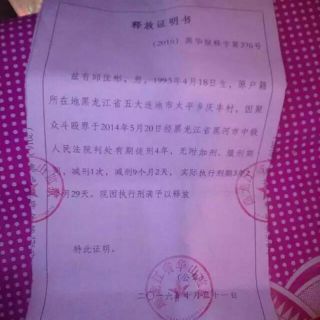 释放证明书
(2016)黑华狱释字第376号
兹有邱佳彬,男,1993年4月18日生,原户籍
所在地黑龙江省五大连池市太平乡庆丰村,因聚
众斗殴罪于2014年5月20日经黑龙江省黑河市中级
人民法院判处有期徒刑4年,无附加刑。服刑期
间,减刑1次,减刑9个月2天,实际执行刑期3年2
月29天。现因执行刑满予以释放
特此证明。
(公章)
二〇一六年十月三十一日